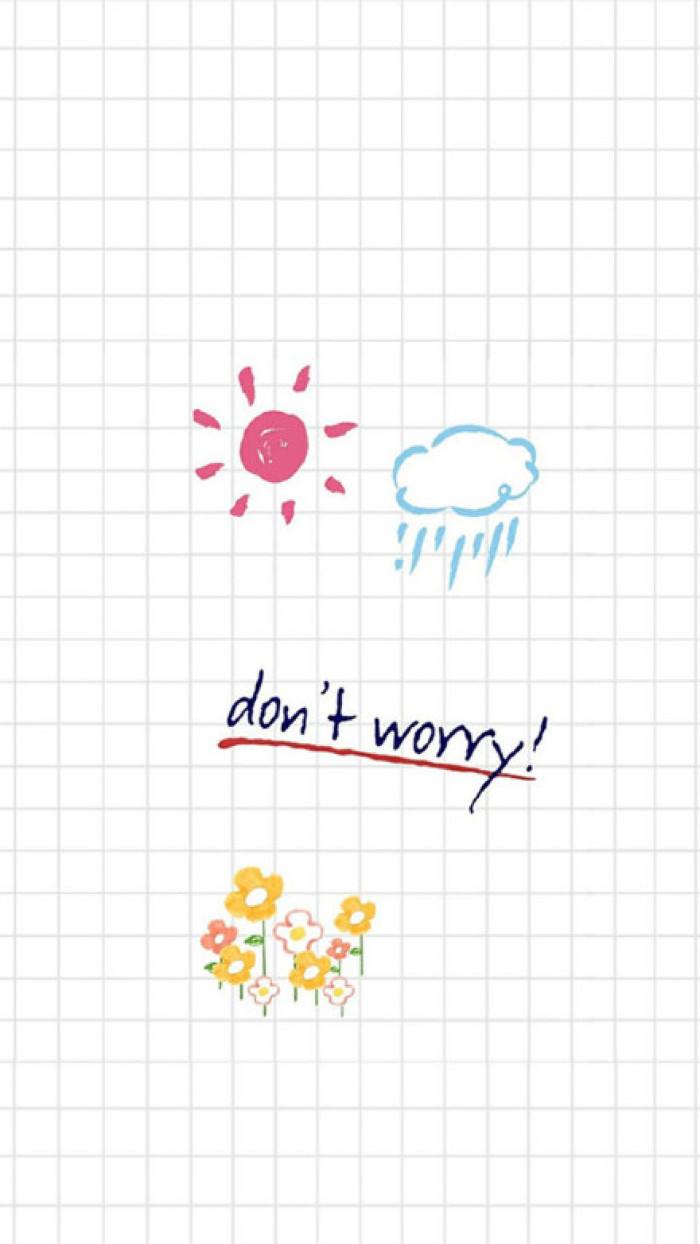 don't worry!